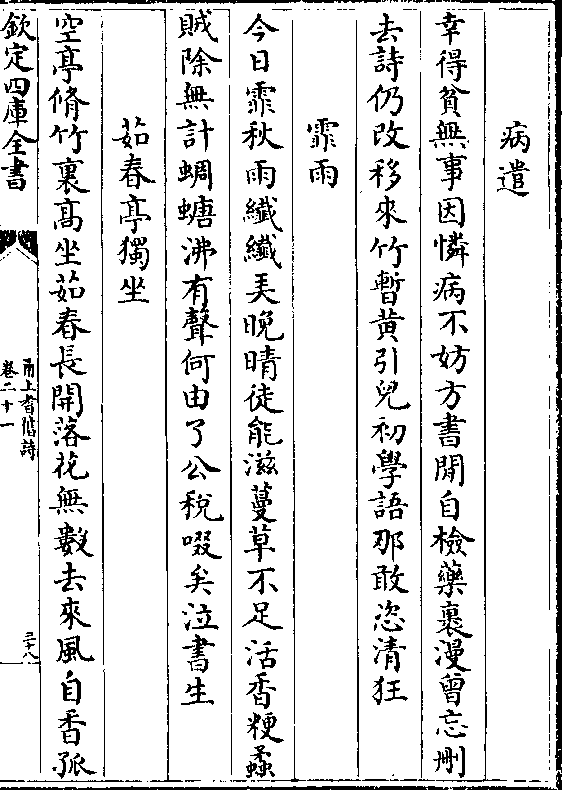 病遣
幸得貧無事因憐病不妨方書閒自檢藥裹漫曾忘刪
去詩仍改移來竹暫黄引兒初學語那敢恣清狂
霏雨
今日霏秋雨纎纎美晚晴徒能滋蔓草不足活香粳蟊
賊除無計蜩螗沸有聲何由了公稅啜矣泣書生
茹春亭獨坐
空亭脩竹裏髙坐茹春長開落花無數去來風自香孤
欽定四庫全書
甬上耆舊詩
卷二十一
三十八